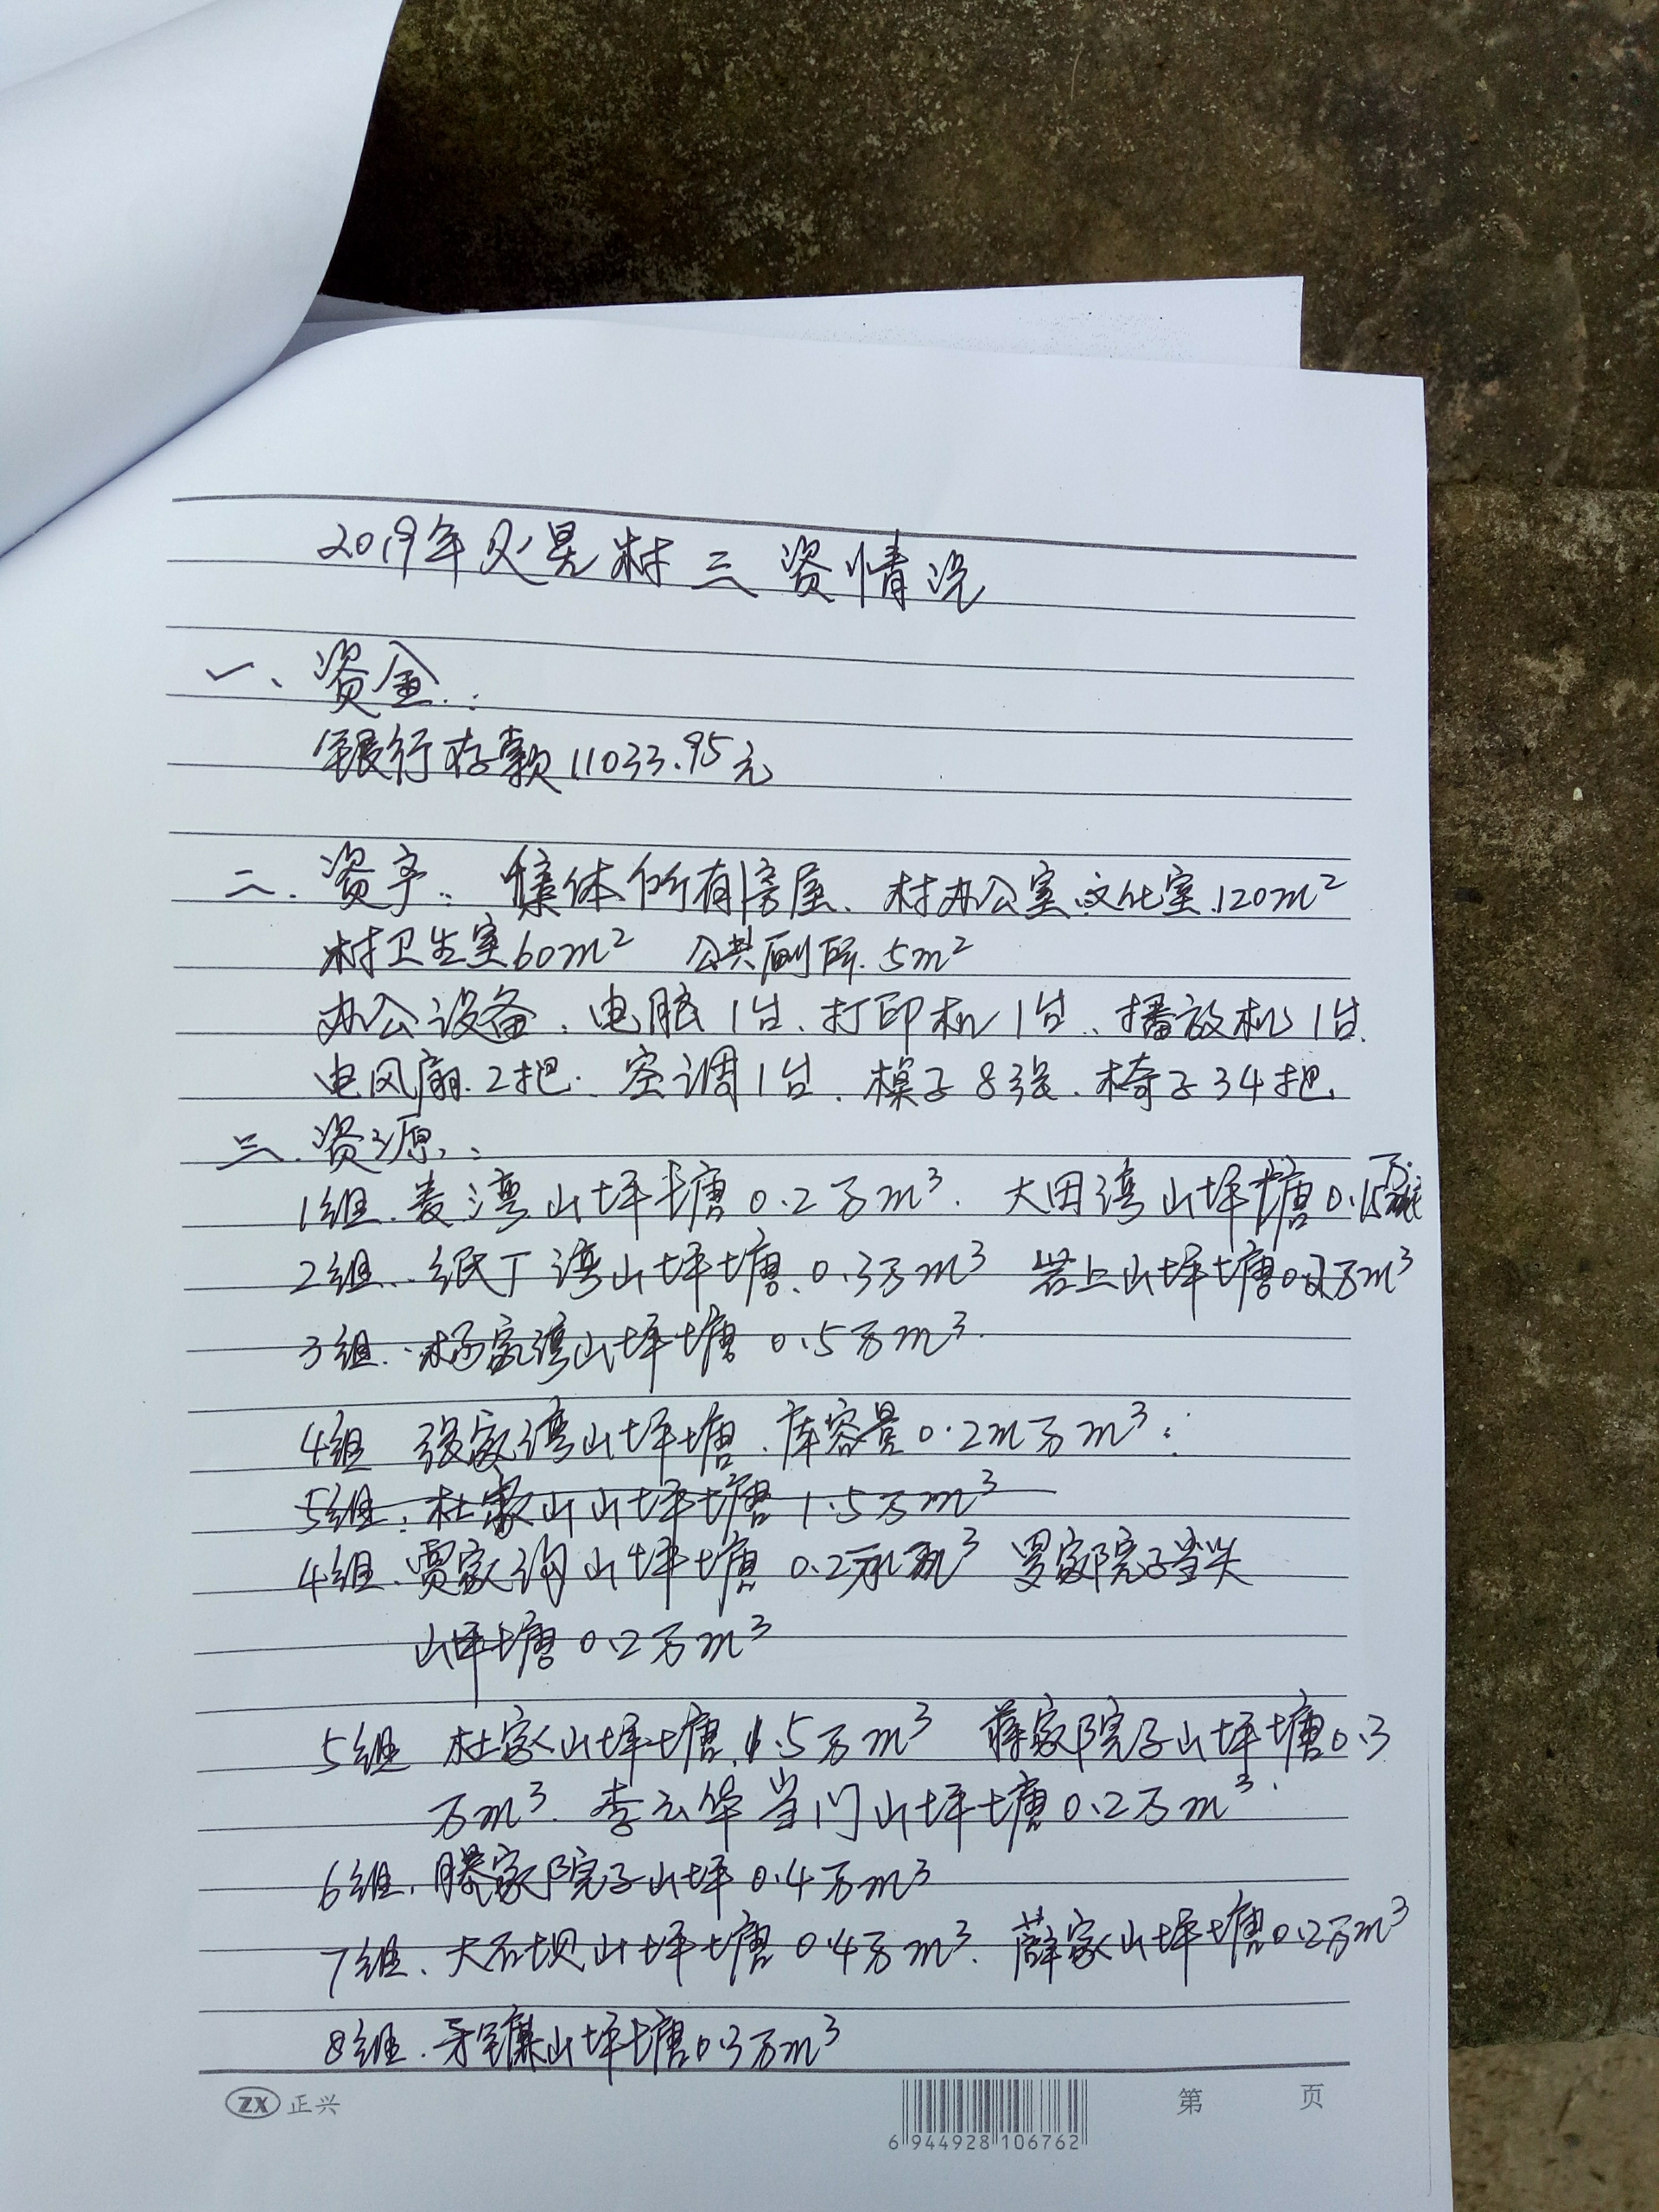 2019年火星村三资情况
一、资金:
银行存款11033.95元
二.资产:集体所有房屋、村办公室、文化室、120m²
村卫生室60m² 公共厕所.5m²
办公设备、电脑1台、打印机1台、播放机1台、
电风扇.2把.空调1台、桌子8张、椅子34把、
三.资源:
1组.麦湾山坪塘0.2万m³. 大田湾山坪塘0.15万
2组..纸丁湾山坪塘.0.3万m³ 岩上山坪塘万m³
3组.杨家湾山坪塘 0.5万m³.
4组 张家湾山坪塘.库容量0.2m万m³:
5组:杜家山山坪塘1.5万m³
4组.贾家沟山坪塘 0.2万m³ 罗家院子
山坪塘0.2万m³
5组 杜家山坪塘.5万m³ 蒋家院子山坪塘0.3
万m³. 李云华当门山坪塘0.2万m³.
6组.滕家院子山坪0.4万m³
7组.大石坝山坪塘0.4万m³. 薛家山坪塘0.2万m³
8组.山坪塘0.3万m³
ZX 正兴
6 944928 106762
第 页